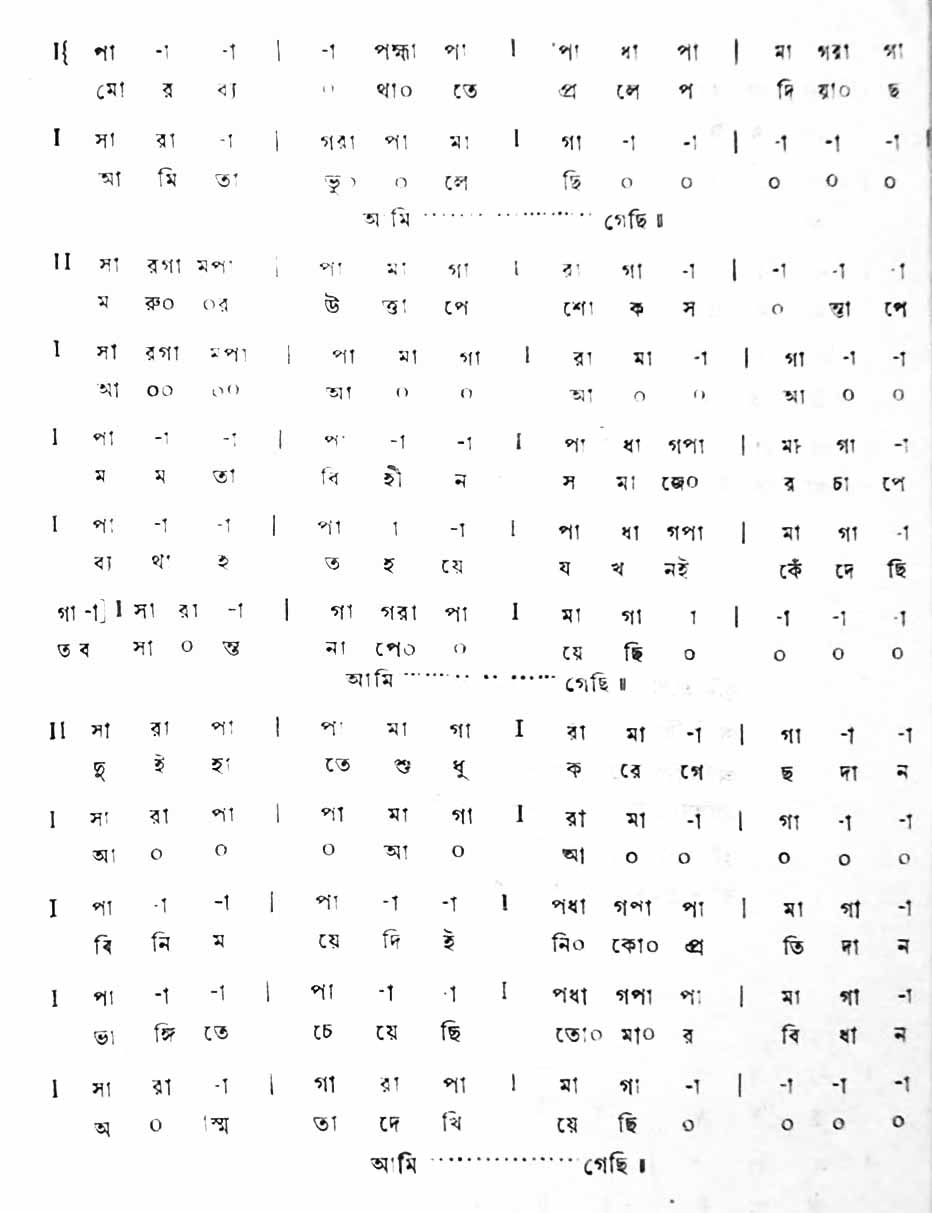 I{ পা -া -া | -া পহ্মা পা I পা ধা পা | মা গরা গা
মো র ব্য ০ থা০ তে প্র লে প দি য়া০ ছ
I সা রা -া | গরা পা মা I গা -া -া | -া -া -া I
আ মি তা ভু০ ০ লে ছি ০ ০ ০ ০ ০
আমি ..................... গেছি॥
II সা রগা মপা | পা মা গা I রা গা -া | -া -া -া
ম রু০ ০র উ ত্তা পে শো ক স ০ ন্তা পে
I সা রগা মপা | পা মা গা I রা মা -া | গা -া -া
আ ০০ ০০ আ ০ ০ আ ০ ০ আ ০ ০
I পা -া -া | পা -া -া I পা ধা গপা | মা গা -া
ম ম তা বি হী ন স মা জে০ র চা পে
I পা -া -া | পা া -া I পা ধা গপা | মা গা -া
ব্য থা হ ত হ য়ে য খ নই কেঁ দে ছি
গা -া] I সা রা -া | গা গরা পা I মা গা া | -া -া -া
ত ব সা ০ ন্ত না পে০ ০ য়ে ছি ০ ০ ০ ০
আমি .................. গেছি॥
II সা রা পা | পা মা গা I রা মা -া | গা -া -া
দু ই হা তে শু ধু ক রে গে ছ দা ন
I সা রা পা | পা মা গা I রা মা -া | গা -া -া
আ ০ ০ ০ আ ০ আ ০ ০ ০ ০ ০
I পা -া -া | পা -া -া I পধা গপা পা | মা গা -া
বি নি ম য়ে দি ই নি০ কো০ প্র তি দা ন
I পা -া -া | পা -া -া I পধা গপা পা | মা গা -া
ভা ঙ্গি তে চে য়ে ছি তো০ মা০ র বি ধা ন
I সা রা -া | গা রা পা I মা গা -া | -া -া -া
অ ০ স্মি তা দে খি য়ে ছি ০ ০ ০ ০
আমি .................. গেছি॥